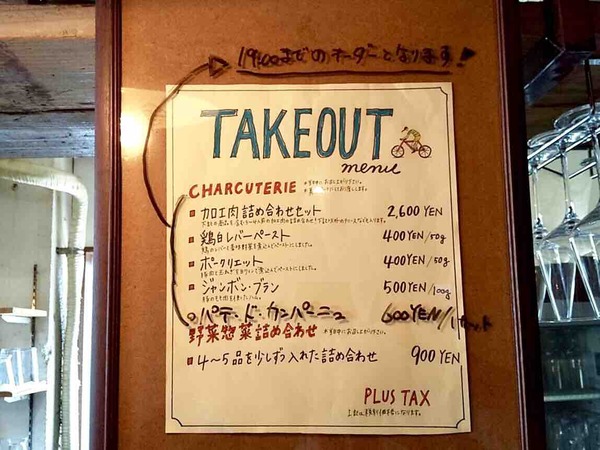 19:00までのオーダーとなります!
TAKEOUT
menu
CHARCUTERIE
加工肉詰め合わせセット 2,600 YEN
鶏白レバーペースト 400 YEN/50g
ポークリエット 400 YEN/50g
ジャンボン・ブラン 500 YEN/100g
パテ・ド・カンパーニュ 600YEN/1カット
野菜惣菜詰め合わせ
4〜5品を少しずつ入れた詰め合わせ 900 YEN
PLUS TAX
上記は税別価格になります。